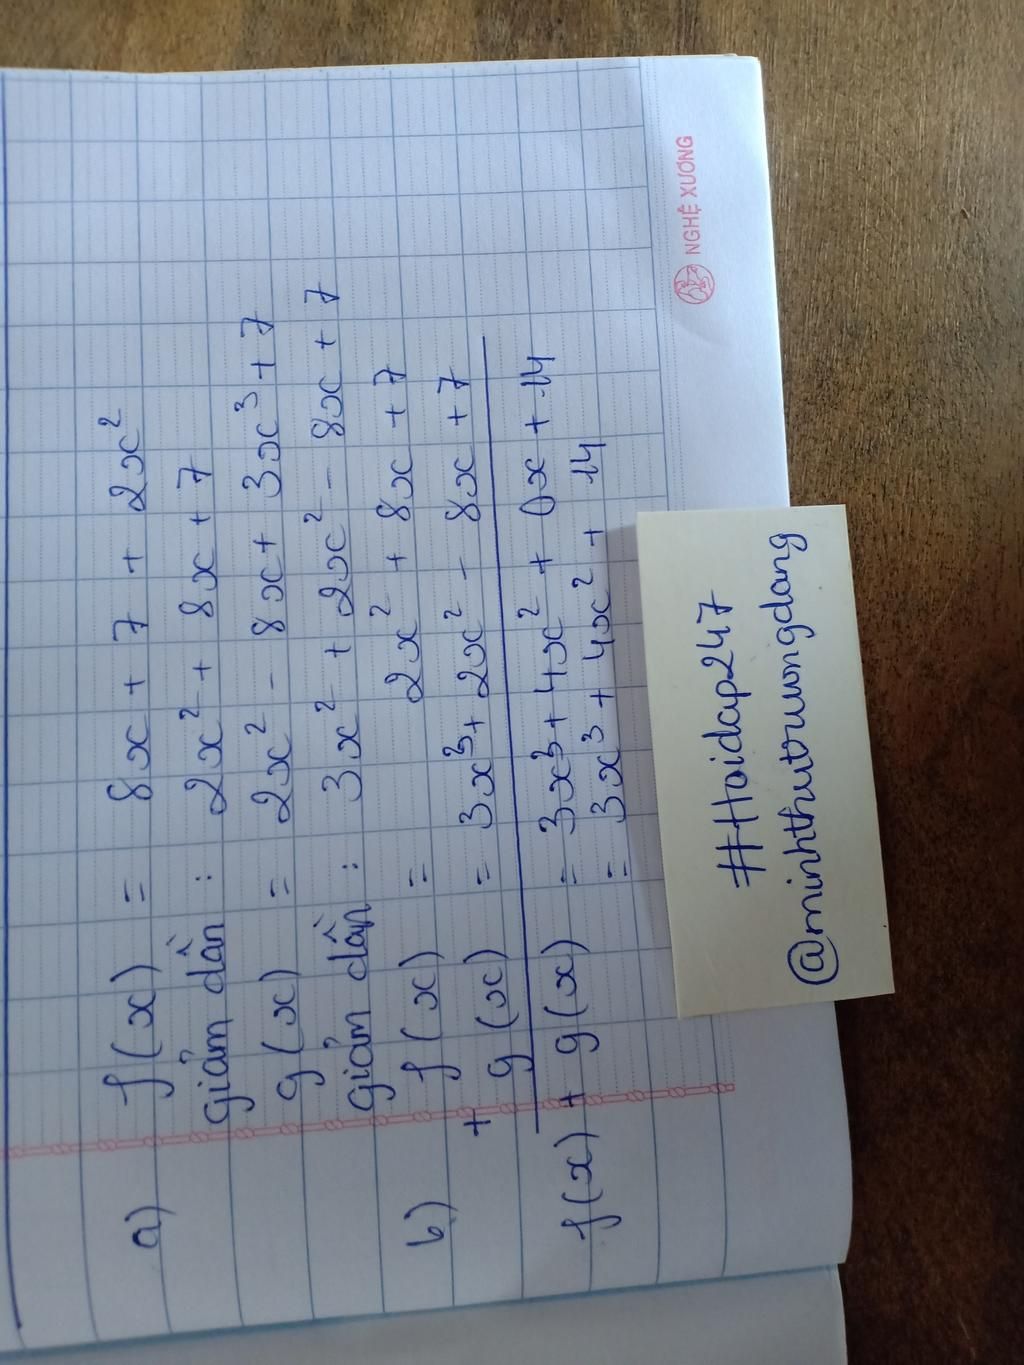 a) f(x) = 8x + 7 + 2x²
giảm dần : 2x² + 8x + 7
g(x) = 2x² - 8x + 3x³ + 7
giảm dần : 3x² + 2x² - 8x + 7
b) f(x) = 2x² + 8x + 7
+ g(x) = 3x³ + 2x² - 8x + 7
f(x) + g(x) = 3x³ + 4x² + 0x + 14
= 3x³ + 4x² + 14
NGHỆ XƯƠNG
#Hoidap247
@minhthutruongdang